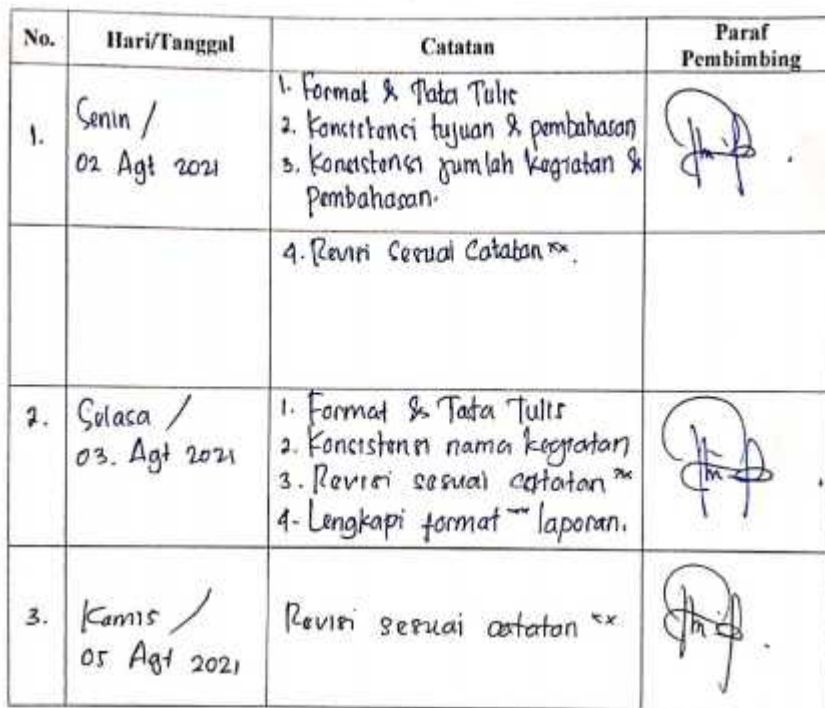 No. Hari/Tanggal Catatan Paraf Pembimbing
1. Senin / 02 Agt 2021
1. Format & Tata Tulis
2. Konsistensi tujuan & pembahasan
3. Konsistensi jumlah kegiatan &
pembahasan.
4. Revisi Sesuai Catatan xx.
2. Selasa / 03. Agt 2021
1. Format & Tata Tulis
2. Konsistensi nama kegiatan
3. Revisi sesuai catatan xx
4. Lengkapi format laporan.
3. Kamis / 05 Agt 2021
Revisi sesuai catatan xx